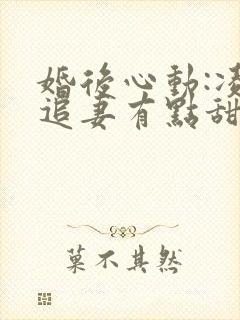 婚後心動:凌
追妻有點甜
菓不其然